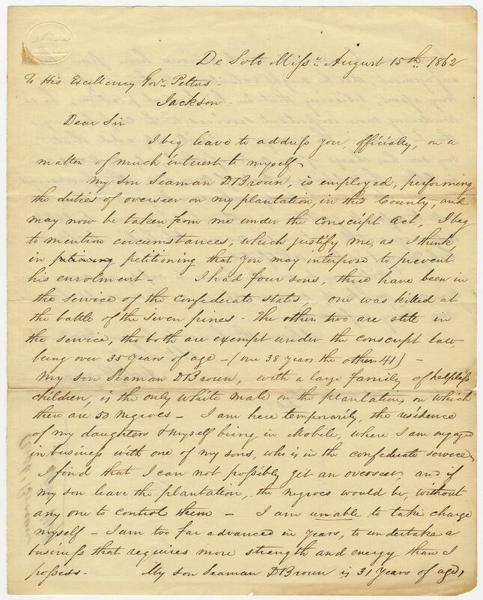 De Soto Missi. August 15th. 1862
To His Excellency Gov. Pettus
Jackson
Dear Sir
I beg leave to address you, officially, on a
matter of much interest to myself.
My son Seaman D Brown, is employed, performing
the duties of overseer on my plantation, in this County, and
may now be taken from me under the Conscript Act, I beg
to mention circumstances, which justify me, as I think,
in petitioning that you may interpose to prevent
his enrolment — I had four sons, three have been in
the service of the Confederate States, one was killed at
the battle of the Seven pines — the other two are still in
the service, tho both are exempt under the conscript law
being over 35 years of age — (one 38 years the other 41) —
My son Seaman D Brown, with a large family of helpless
children, is the only white male on the plantation, on which
there are 50 negroes — I am here temporarily, the residence
of my daughters & myself being in Mobile, where I am engaged
in business with one of my sons, who is in the confederate service,
I find that I can not possibly get an overseer, and if
my son leave the plantation, the negroes would be, without
any one to control them — I am unable to take charge
myself — I am too far advanced in years, to undertake a
business that requires more strength and energy than I
possess — My son Seaman D Brown is 31 years of age,